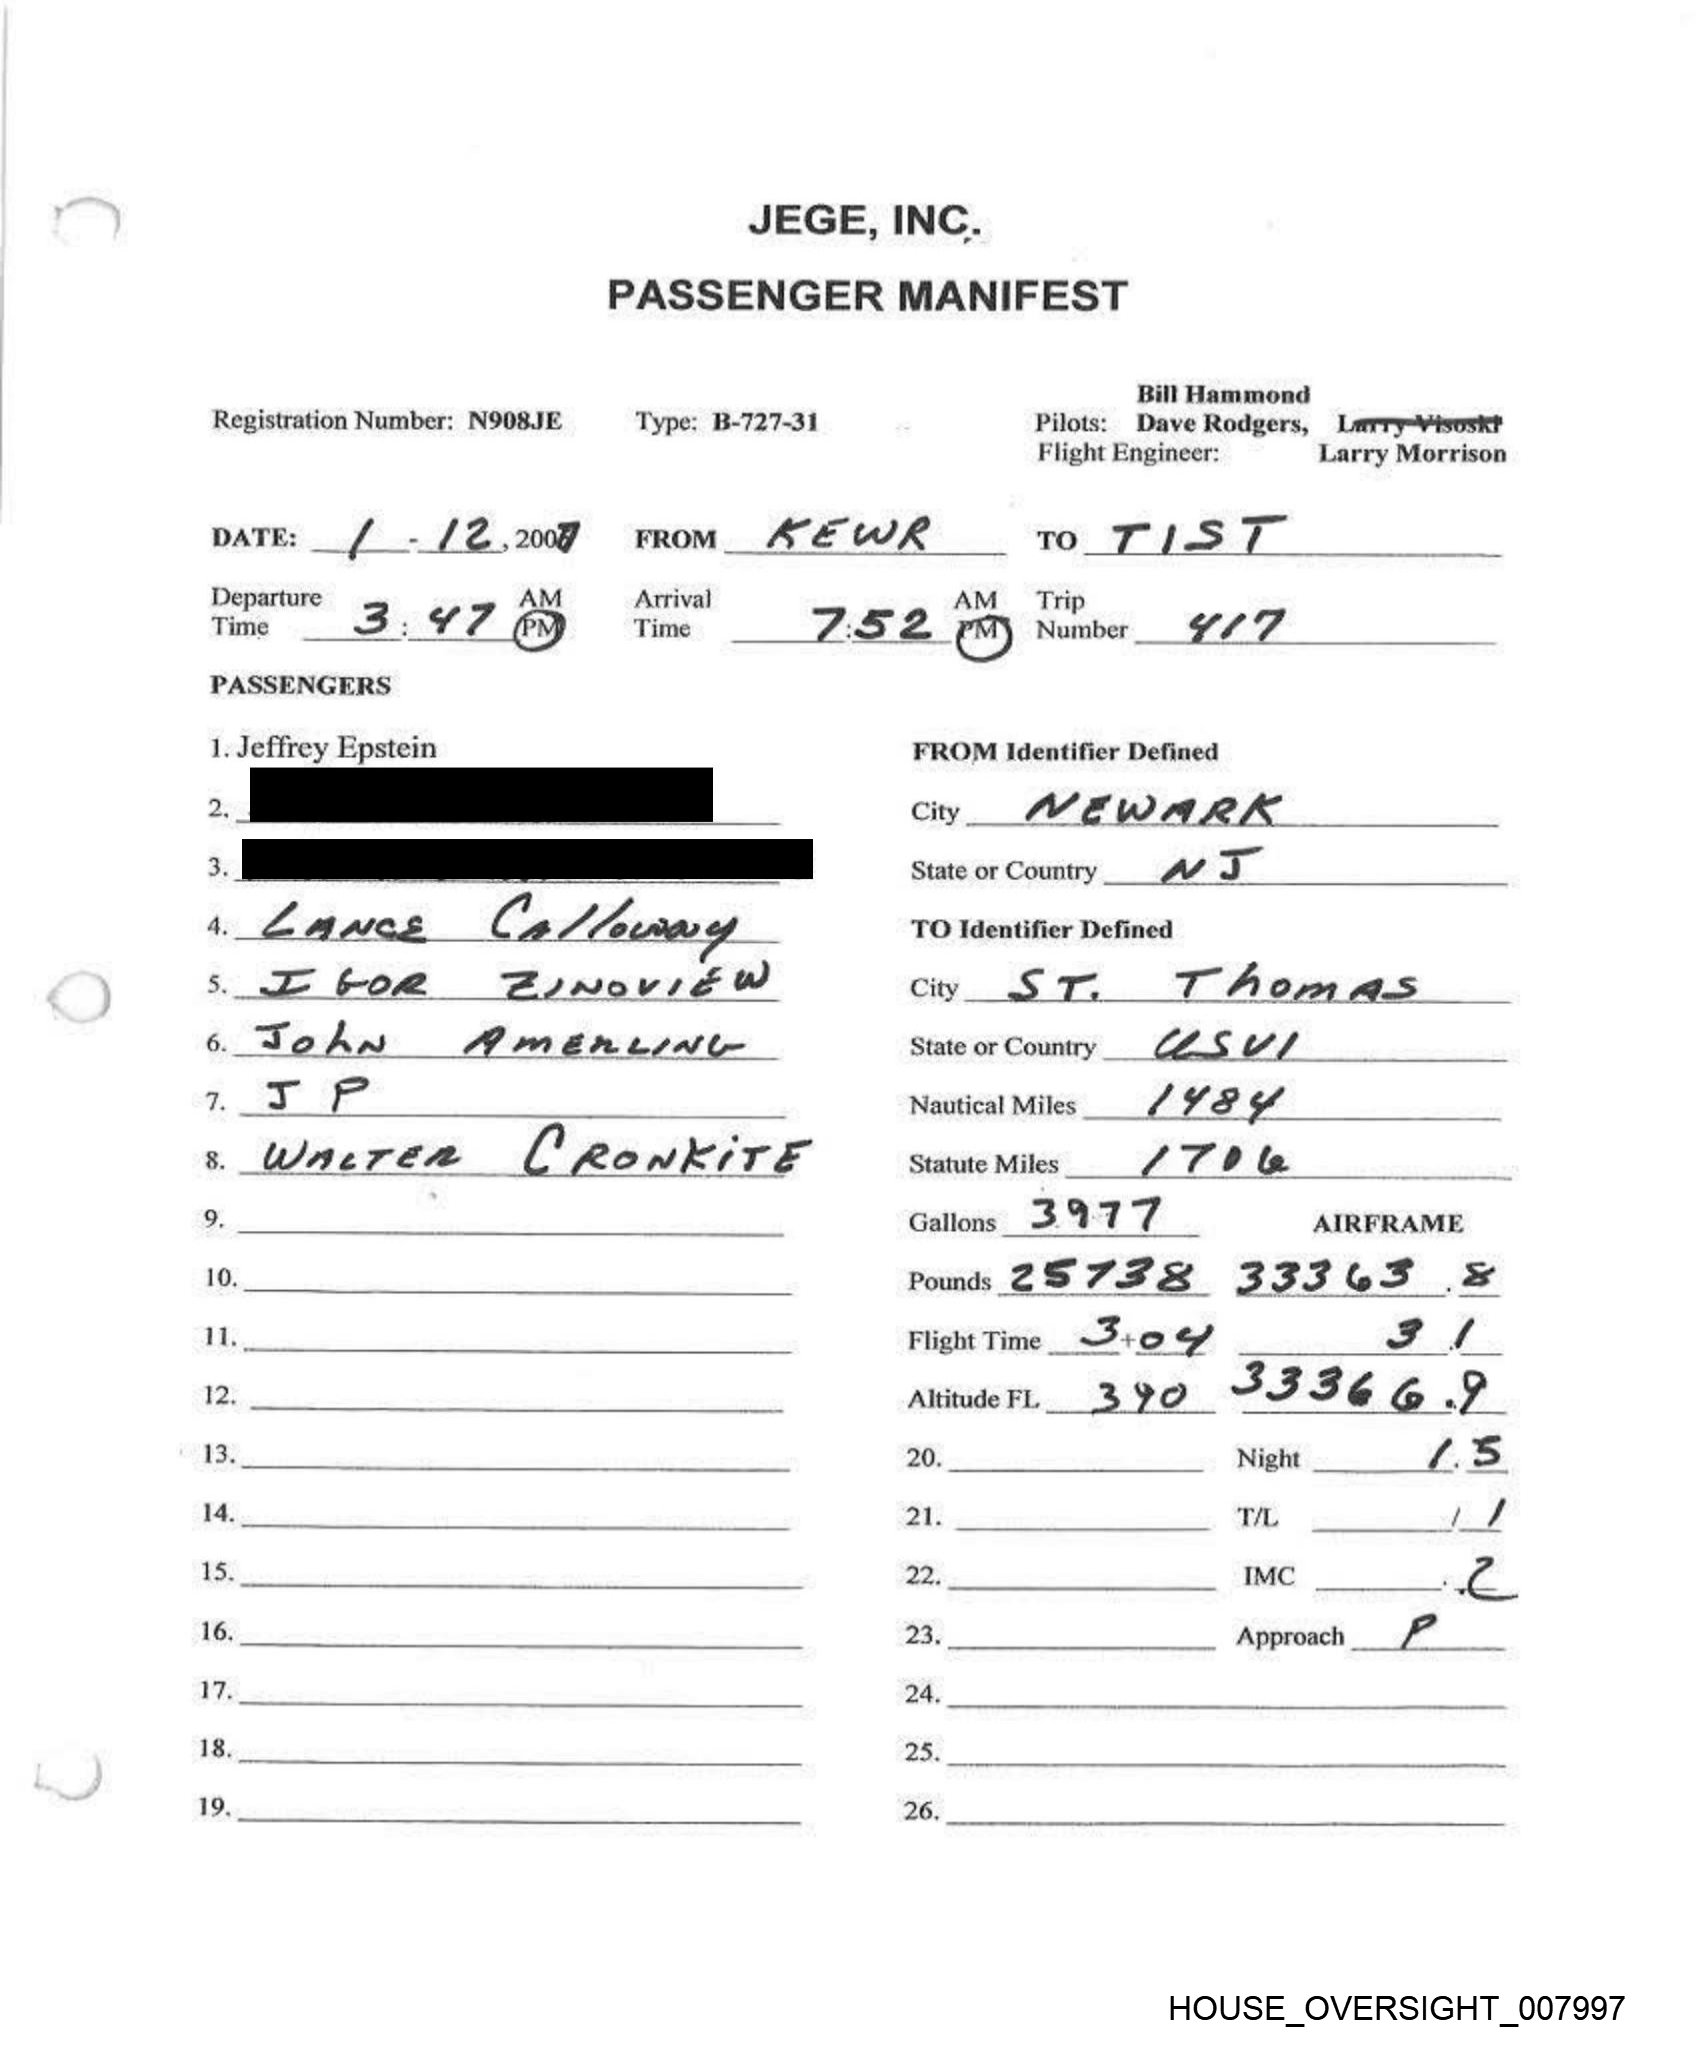 JEGE, INC.
PASSENGER MANIFEST
Bill Hammond
Registration Number: N908JE Type: B-727-31 Pilots: Dave Rodgers, Larry Visoski
Flight Engineer: Larry Morrison
DATE: 1 - 12, 2007 FROM KEWR TO TIST
Departure Time 3:47 AM PM Arrival Time 7:52 AM PM Trip Number 417
PASSENGERS
1. Jeffrey Epstein
2.
3.
4. LANCE CAlloway
5. IGOR ZINOVIEW
6. JOhN AMERLING
7. J P
8. WALTER CRONKiTE
9.
10.
11.
12.
13.
14.
15.
16.
17.
18.
19.
FROM Identifier Defined
City NEWARK
State or Country NJ
TO Identifier Defined
City ST. ThOMAS
State or Country USVI
Nautical Miles 1484
Statute Miles 1706
Gallons 3977 AIRFRAME
Pounds 25738 33363.8
Flight Time 3+04 3.1
Altitude FL 390 33366.9
20. Night 1.5
21. T/L 1/1
22. IMC .2
23. Approach P
24.
25.
26.
HOUSE_OVERSIGHT_007997